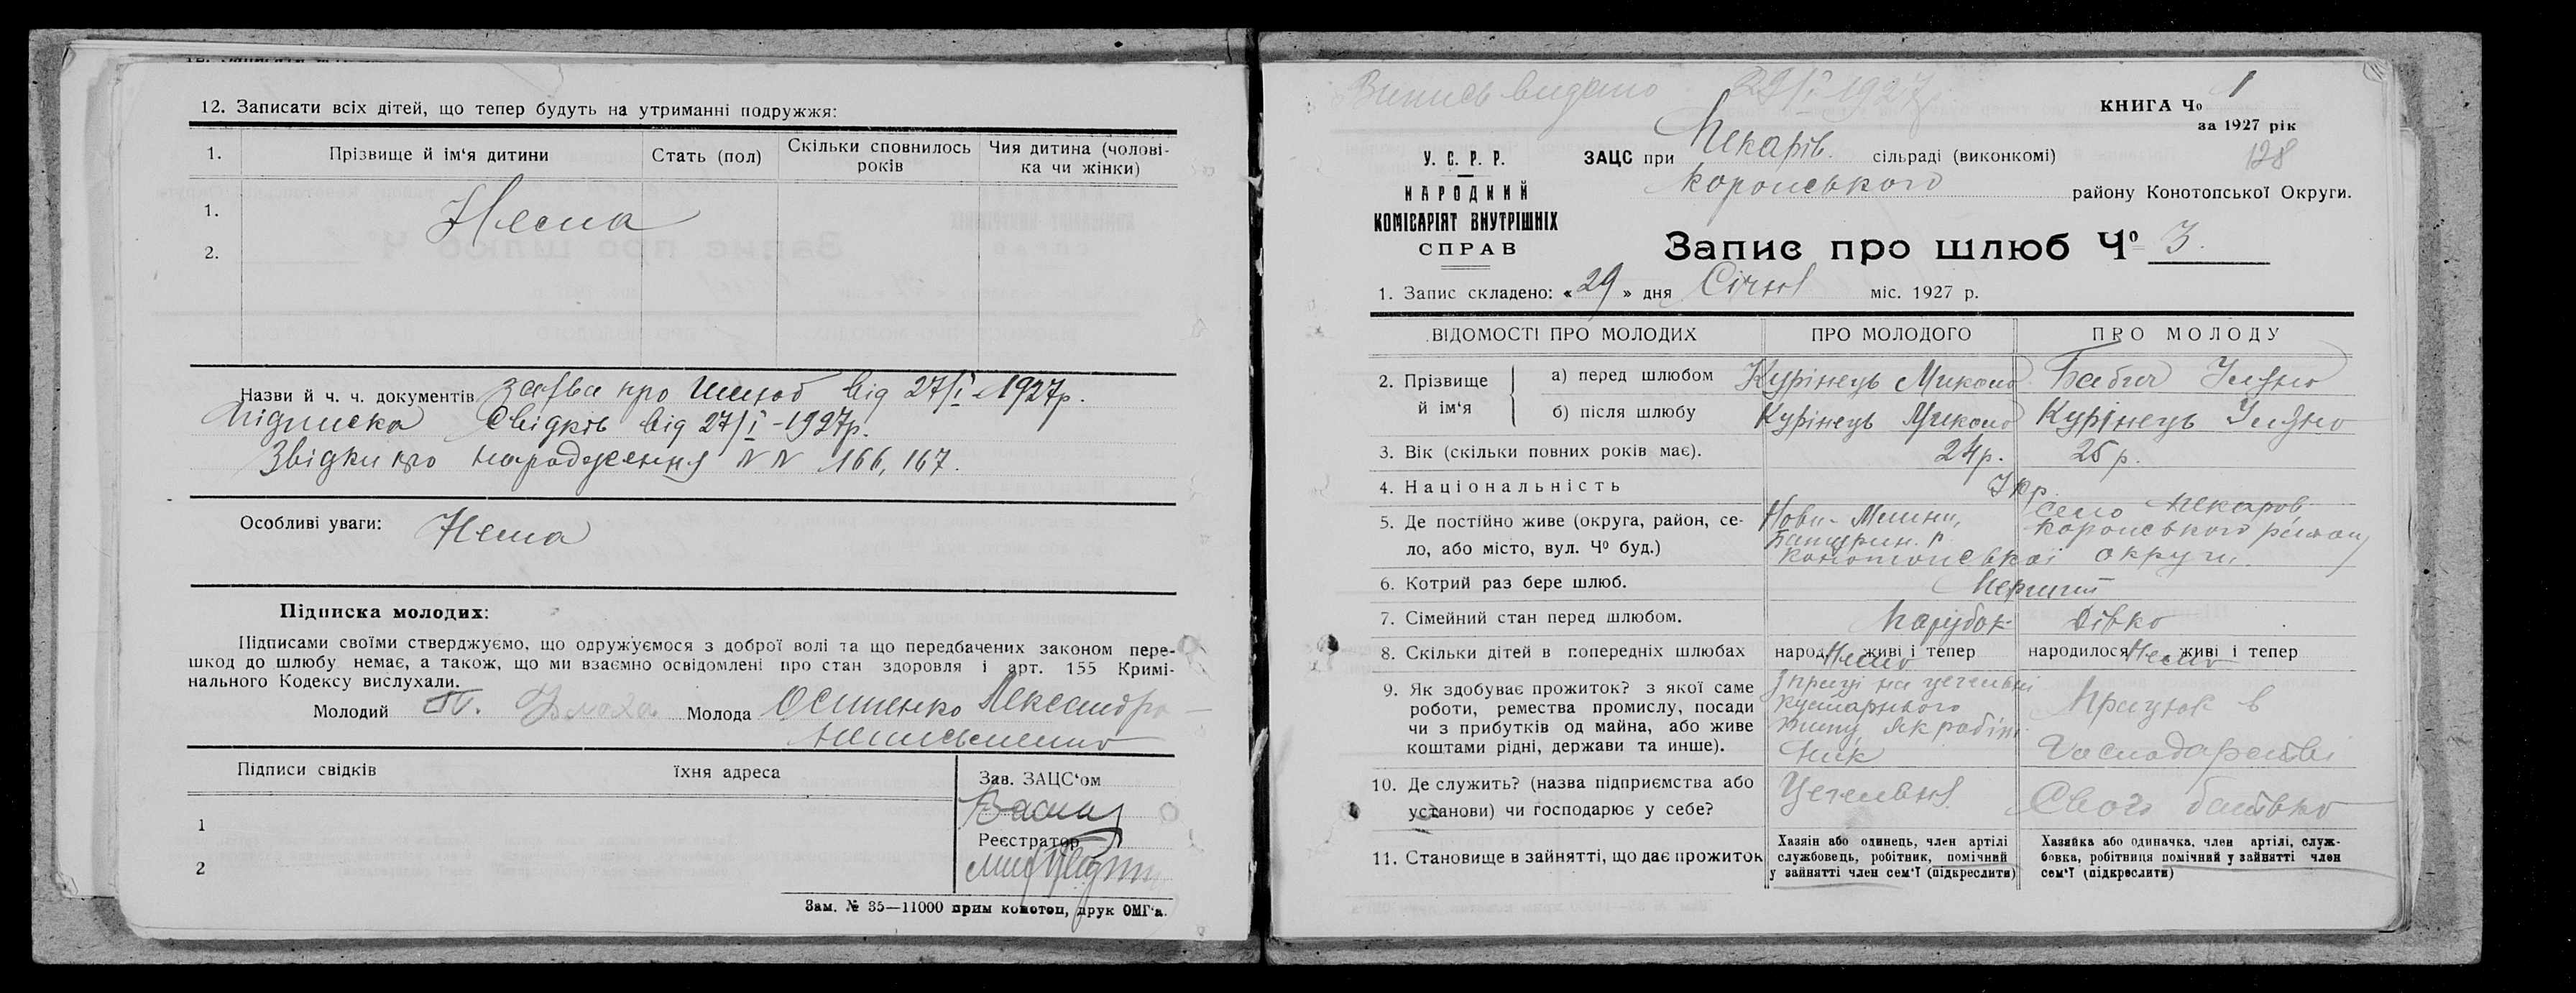 12. Записати всіх дітей, що тепер будуть на утриманні подружжя:
1. Прізвище й ім‘я дитини Стать (пол) Скільки сповнилось років Чия дитина (чоловіка чи жінки)
1. Нема
2.
Назви й ч. ч. документів Заява про шлюб від 27/I-1927р.
Підписка свідків від 27/I-1927р.
Звідки про народження NN 166, 167.
Особливі уваги: Нема
Підписка молодих:
Підписами своїми стверджуємо, що одружуємося з доброї волі та що передбачених законом пере-
шкод до шлюбу немає, а також, що ми взаємно освідомлені про стан здоровля і арт. 155 Кримі-
нального Кодексу вислухали.
Молодий Молода Осипенко Александра
Підписи свідків Їхня адреса Зав. ЗАЦС‘ом
1
Реєстратор
2
Зам. № 35—11000 прим конотоп, друк ОМГ‘а.
Випись видано 29/I 1927р.
КНИГА Чо 1
за 1927 рік
128
У. С. Р. Р.
НАРОДНИЙ
КОМІСАРІЯТ ВНУТРІШНІХ
СПРАВ
ЗАЦС при Пекарів. сільраді (виконкомі)
Коропського району Конотопської Округи.
Запис про шлюб Чо 3.
1. Запис складено: «29» дня Січня міс. 1927 р.
ВІДОМОСТІ ПРО МОЛОДИХ ПРО МОЛОДОГО ПРО МОЛОДУ
2. Прізвище й ім‘я
а) перед шлюбом Курінець Микола Бабич Уляна
б) після шлюбу Курінець Микола Курінець Уляна
3. Вік (скільки повних років має). 24р. 25р.
4. Національність Укр
5. Де постійно живе (округа, район, се-
ло, або місто, вул. Чо буд.)
Нови-Млини,
Батурин. р
село Пекаров
Коропського району
Конотопської округи.
6. Котрий раз бере шлюб. Перший
7. Сімейний стан перед шлюбом. Парубок Дівка
8. Скільки дітей в попередніх шлюбах народ. живі і тепер Нема народилося живі і тепер Нема
9. Як здобуває прожиток? з якої саме
роботи, ремества промислу, посади
чи з прибутків од майна, або живе
коштами рідні, держави та инше).
З праці на цегельні
кустарного
типу як робіт
ник
Працює в
господарстві
10. Де служить? (назва підприємства або
установи) чи господарює у себе?
Цегельня
Свого батька
11. Становище в зайнятті, що дає прожиток
Хазяін або одинець, член артілі
службовець, робітник, помічний
у зайнятті член сем‘ї (підкреслити)
Хазяйка або одиначка, член артілі, служ-
бовка, робітниця помічний у зайнятті член
сем‘ї (підкреслити)